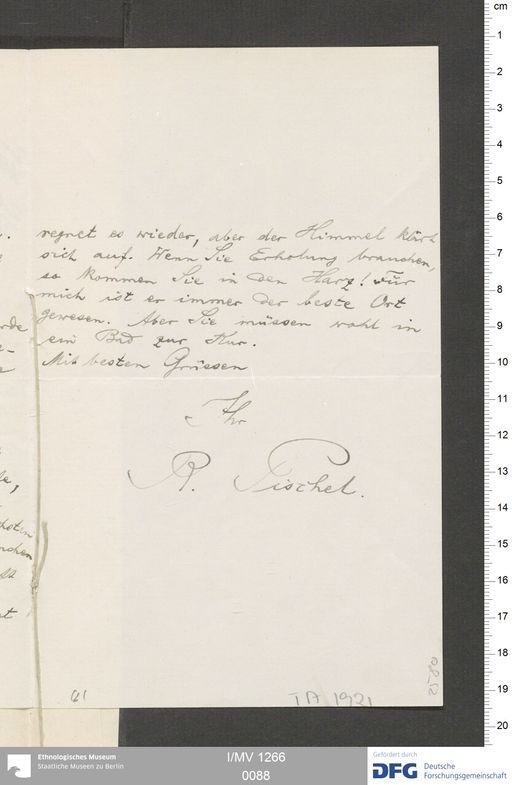 regnet es wieder, aber der Himmel klärt
sich auf. Wenn Sie Erholung brauchen,
so kommen Sie in den Harz! Für
mich ist er immer der beste Ort
gewesen. Aber Sie müssen wohl in
ein Bad zur Kur.
Mit besten Grüssen
Ihr
R. Pischel.
I A 1921
cm
1
2
3
4
5
6
7
8
9
10
11
12
13
14
15
16
17
18
19
20
Ethnologisches Museum
Staatliche Museen zu Berlin
I/MV 1266
0088
Gefördert durch
DFG Deutsche
Forschungsgemeinschaft